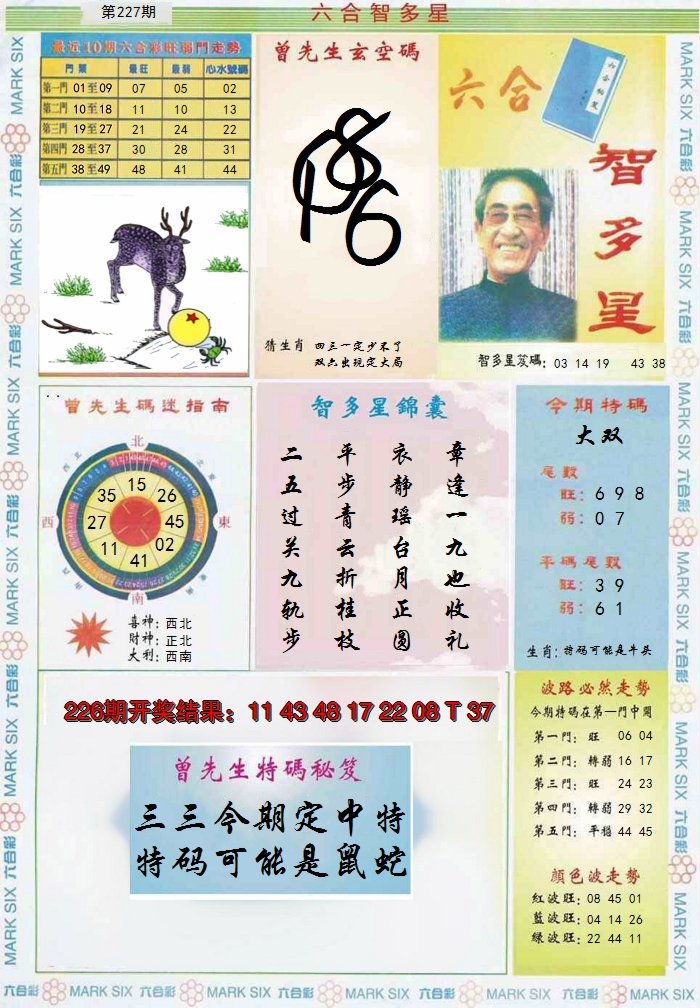 第227期
六合智多星
最近10期六合彩旺弱門走勢
門類 最旺 最弱 心水號碼
第一門 01至09 07 05 02
第二門 10至18 11 10 13
第三門 19至27 21 24 22
第四門 28至37 30 28 31
第五門 38至49 48 41 44
曾先生玄空碼
猜生肖 四三一定少不了
双六出现定大局
六合
智多星
智多星笈碼: 03 14 19 43 38
曾先生碼迷指南
北
西北
北東
西
東
南
15
26
45
02
41
11
27
35
喜神: 西北
財神: 正北
大利: 西南
智多星錦囊
二五过关九轨步
平步青云折桂枝
衣静瑶台月正圆
章逢一九也收礼
今期特碼
大双
尾数
旺: 6 9 8
弱: 0 7
平碼尾数
旺: 3 9
弱: 6 1
生肖: 特码可能是牛头
226期开奖结果：11 43 48 17 22 08 T 37
曾先生特碼秘笈
三三今期定中特
特码可能是鼠蛇
波路必然走勢
今期特碼在第一門中開
第一門: 旺 06 04
第二門: 轉弱 16 17
第三門: 旺 24 23
第四門: 轉弱 29 32
第五門: 平穩 44 45
顏色波走勢
紅波旺: 08 45 01
藍波旺: 04 14 26
綠波旺: 22 44 11
六合彩 MARK SIX 六合彩 MARK SIX 六合彩 MARK SIX 六合彩 MARK SIX 六合彩 MARK SIX